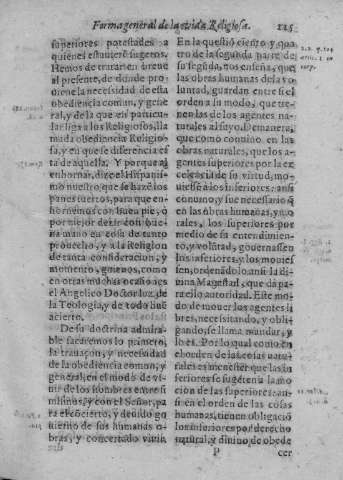 Forma general de la vida Religiosa. 225
superiores potestades a
quienes estuuere sugetos.
Hemos de tratar en breue
al presente, de donde pro
uiene la necesidad de esta
obediencia comun, y gene
ral, y de la que en particu
lar liga a los Religiosos, lla
mada obediencia Religio-
sa, y en que se diferencia es
ta de aquella. Y porque al
enhornar, dize el Hispanis
mo nuestro, que se hazē los
panes tuertos, para que en-
hornemos con buen pie, o
por mejor dezir con bue-
na mano en cosa de tanto
prouecho, y a la Religion
de tanta consideracion, y
momento, guienos, como
en otras muchas ocasiones
el Angelico Doctor luz de
la Teologia, y de todo buē
acierto.
De su doctrina admira-
ble sacaremos lo primero,
la trauaçon, y necesidad
de la obediencia comun, y
general, en el modo de vi-
uir de los hombres entre si
mismos, y con el Señor, pa
ra el cōcierto, y deuido go
uierno de sus humanas o-
bras, y concertado viuir.
En la questiō ciento y qua
tro de la segunda parte de
su segūda, nos enseña, que
las obras humanas de la vo
luntad, guardan entre si el
orden de los agentes na-
turales al suyo. De manera,
que como conuino en las
obras naturales, que los a-
gentes superiores por la ex
celencia de su virtud, mo-
uiesse a los inferiores: ansi
conuino, y fue necessario q̄
en las obras humanas, y mo
rales, los superiores por
medio de su entendimien-
to, y voluntad, gouernassen
los inferiores, y los mouies
sen, ordenādolo ansi la di-
uina Magestad, que dà pa-
ra ello autoridad. Este mo-
do de mouer los agentes li
bres, necesitando, y obli-
gando, se llama mandar, y
lo es. Por lo qual como en
el orden de las cosas natu-
rales es menester que las in
feriores se sugeten a la mo
cion de las superiores: an-
si en el orden de las cosas
humanas, tienen obligaciō
los inferiores por derecho
natural, y diuino, de obede
P cer